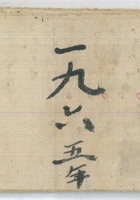 一九六五年